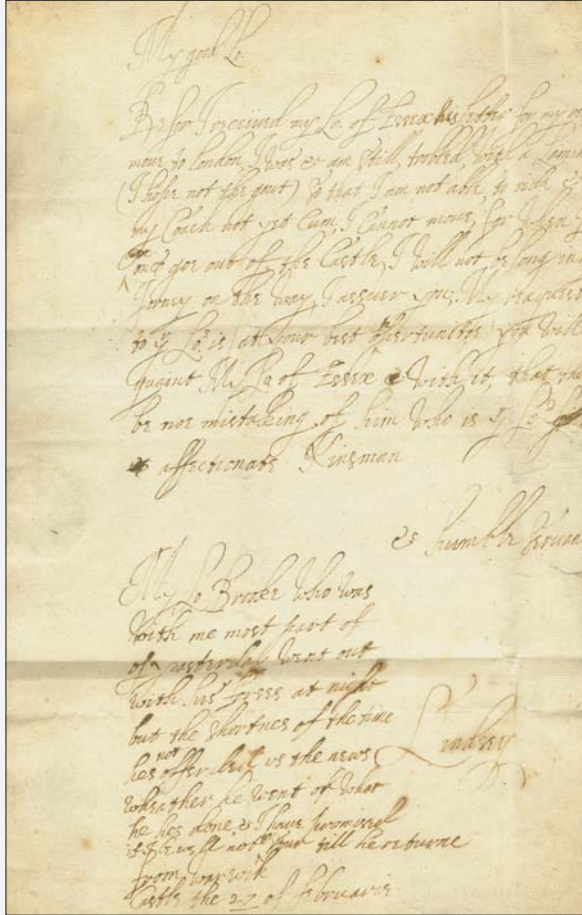 My good Lo:
Befor I receiued my Lo. of Essex his letter for my re
moue to London, I was & am still, trobled, with a Lamnes
(I hope not the gout) so that I am not able to ride &
my Coach not yet cum, I Cannot moue, for when
onc goe out of the Castle, I will not be long in
Jorney on the way, I asseuer you, My request
to yr Lo: is (at your best opertunitee) you will
aquaint My Lo of Essix with it, that the
be noe mistaking of him who is yr Lops
& affectionate Kinsman
& humble servan
Lindsey
My Lo Brooke who was
with me most part of
yesterdaye went out
with his forses at night
but the shortnes of the time
hes not offerded us the news
wheather he went of what
he hes done & I have promised
not stur till he returne
from warwik
Castle the 27 of februarie